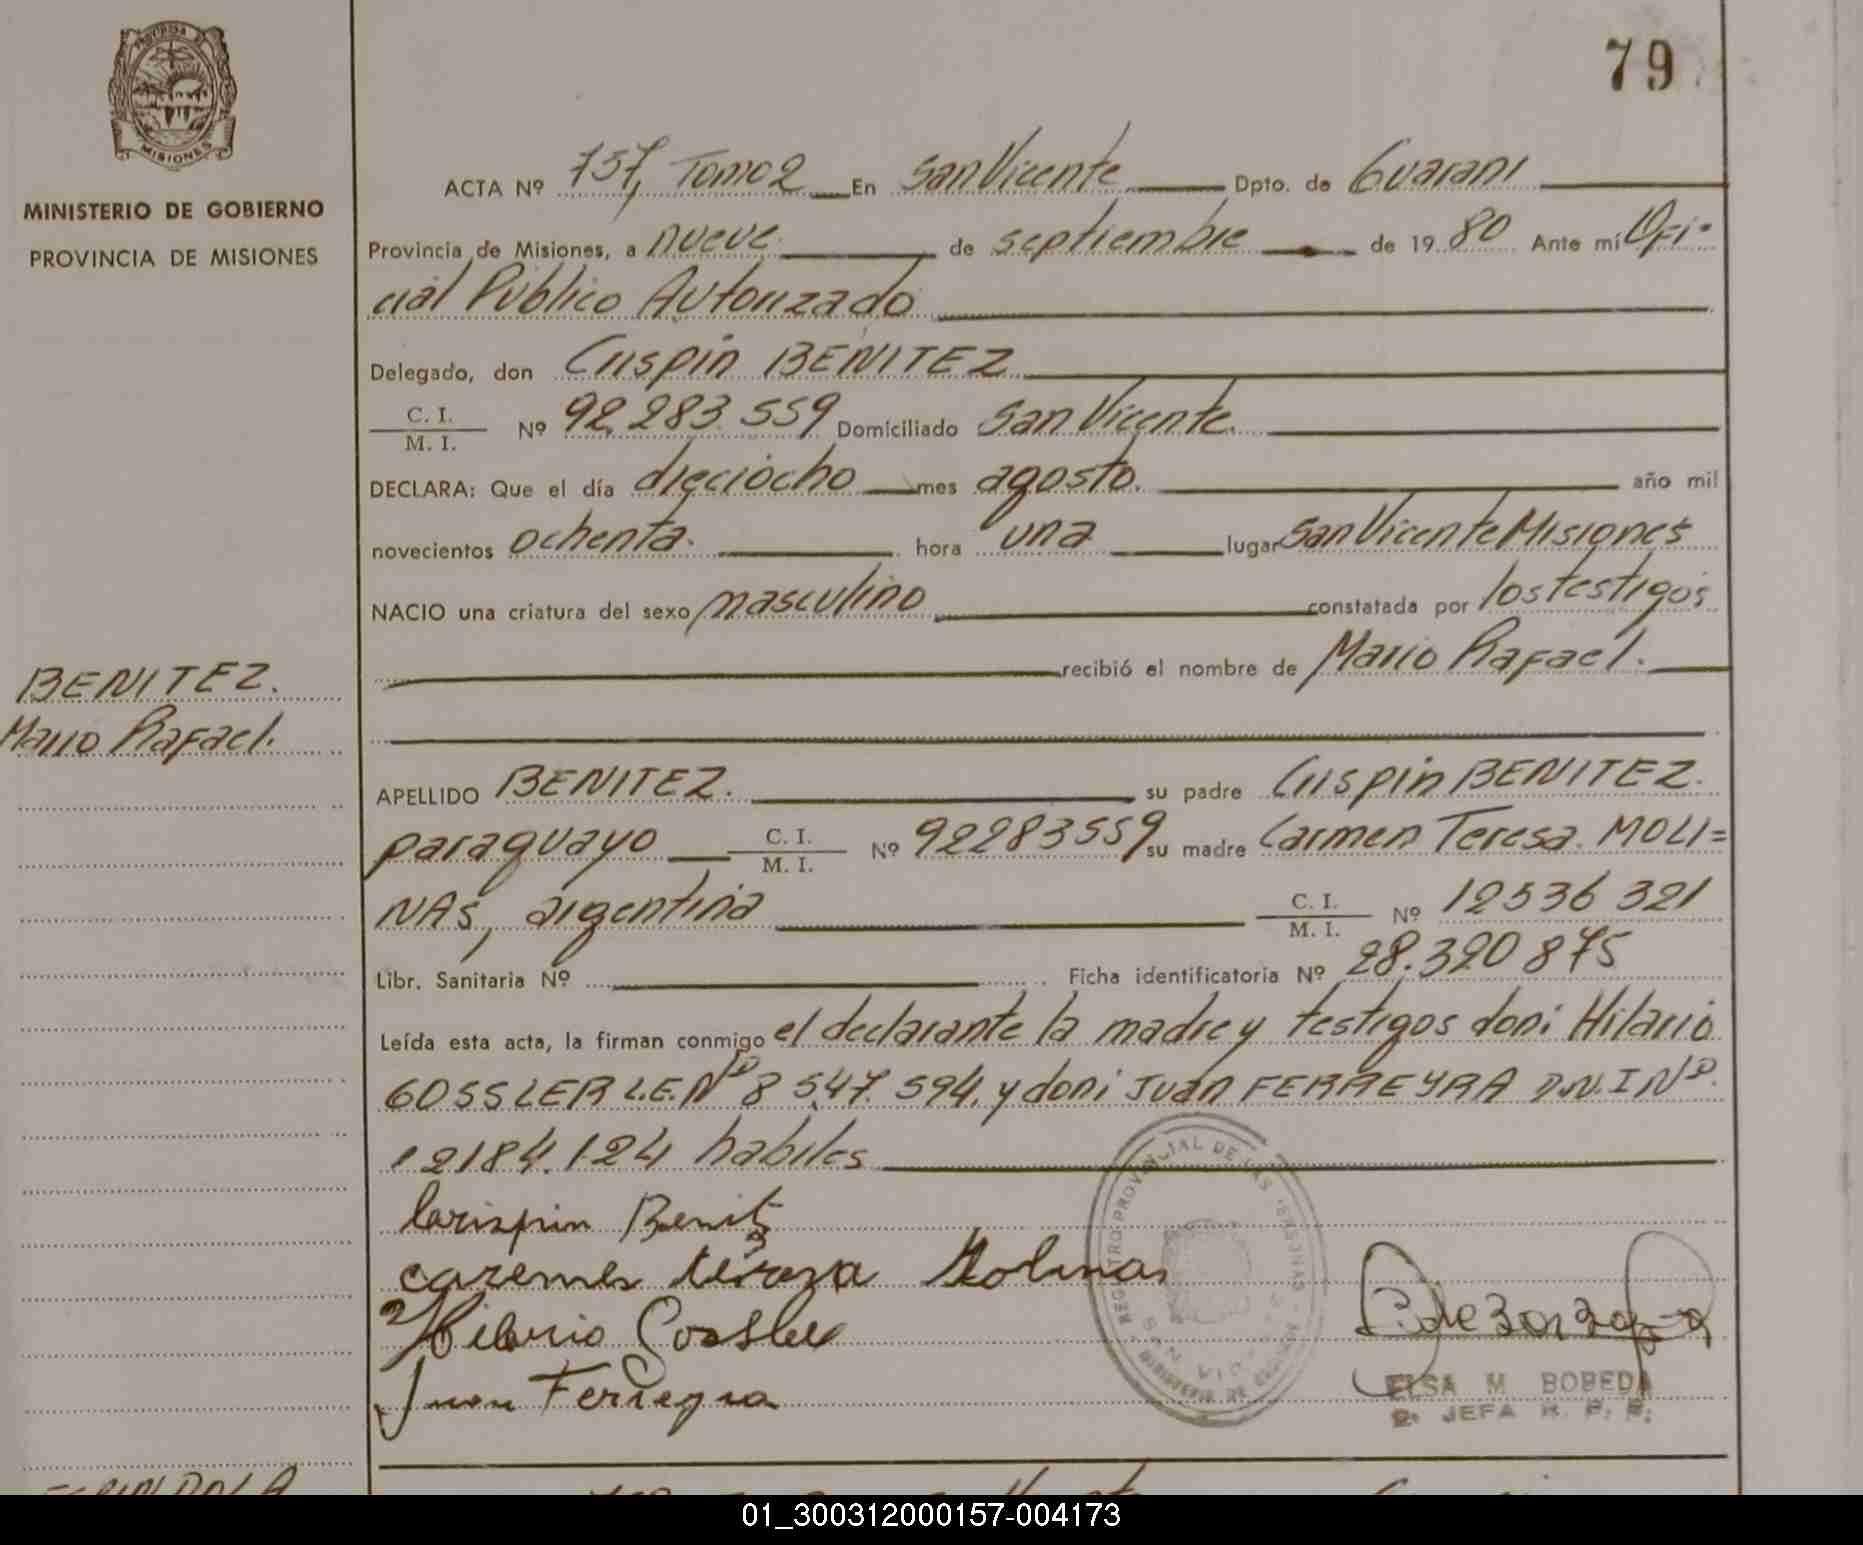 79
PROVINCIA DE
MISIONES
MINISTERIO DE GOBIERNO
PROVINCIA DE MISIONES
ACTA Nº 757, Tomo 2 En San Vicente Dpto. de Guarani
Provincia de Misiones, a nueve de septiembre de 1980 Ante mí Ofi-
cial Público Autorizado
Delegado, don Crispin BENITEZ
C. I. / M. I. Nº 92.283.559 Domiciliado San Vicente.
DECLARA: Que el día dieciocho mes agosto. año mil
novecientos ochenta. hora una lugar San Vicente Misiones
NACIO una criatura del sexo masculino constatada por los testigos
recibió el nombre de Mario Rafael.
BENITEZ.
Mario Rafael.
APELLIDO BENITEZ. su padre Crispin BENITEZ.
paraguayo C. I. / M. I. Nº 92283559 su madre Carmen Teresa. MOLI=
NAS, argentina C. I. / M. I. Nº 12536 321
Libr. Sanitaria Nº Ficha identificatoria Nº 28.320 875
Leída esta acta, la firman conmigo el declarante la madre y testigos don: Hilario
GOSSLER L.E.Nº 8 547. 594. y don: Juan FERREYRA D.N.I Nº.
12184.124 habiles
Crispin Benit
caremen tereza Molinas
Hilario Gossler
Juan Ferreyra
REGISTRO PROVINCIAL DE LAS PERSONAS
SAN VICENTE
MINISTERIO DE GOBIERNO
ELSA M BOBEDA
JEFA R. P. P.
01_300312000157-004173